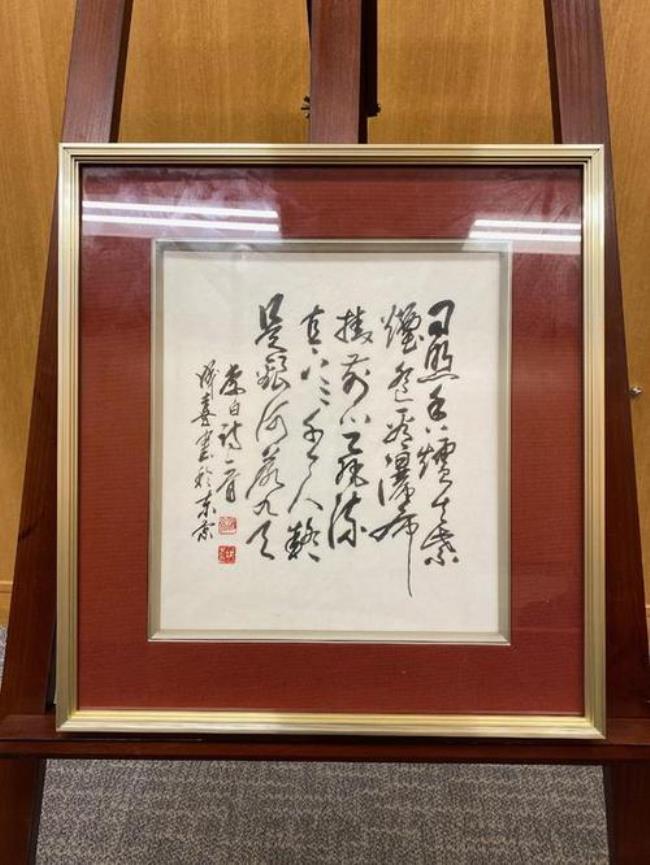 日照香爐生紫
煙遙看瀑布
掛前川飛流
直下三千尺疑
是銀河落九天
李白詩一首
成喜書於東京